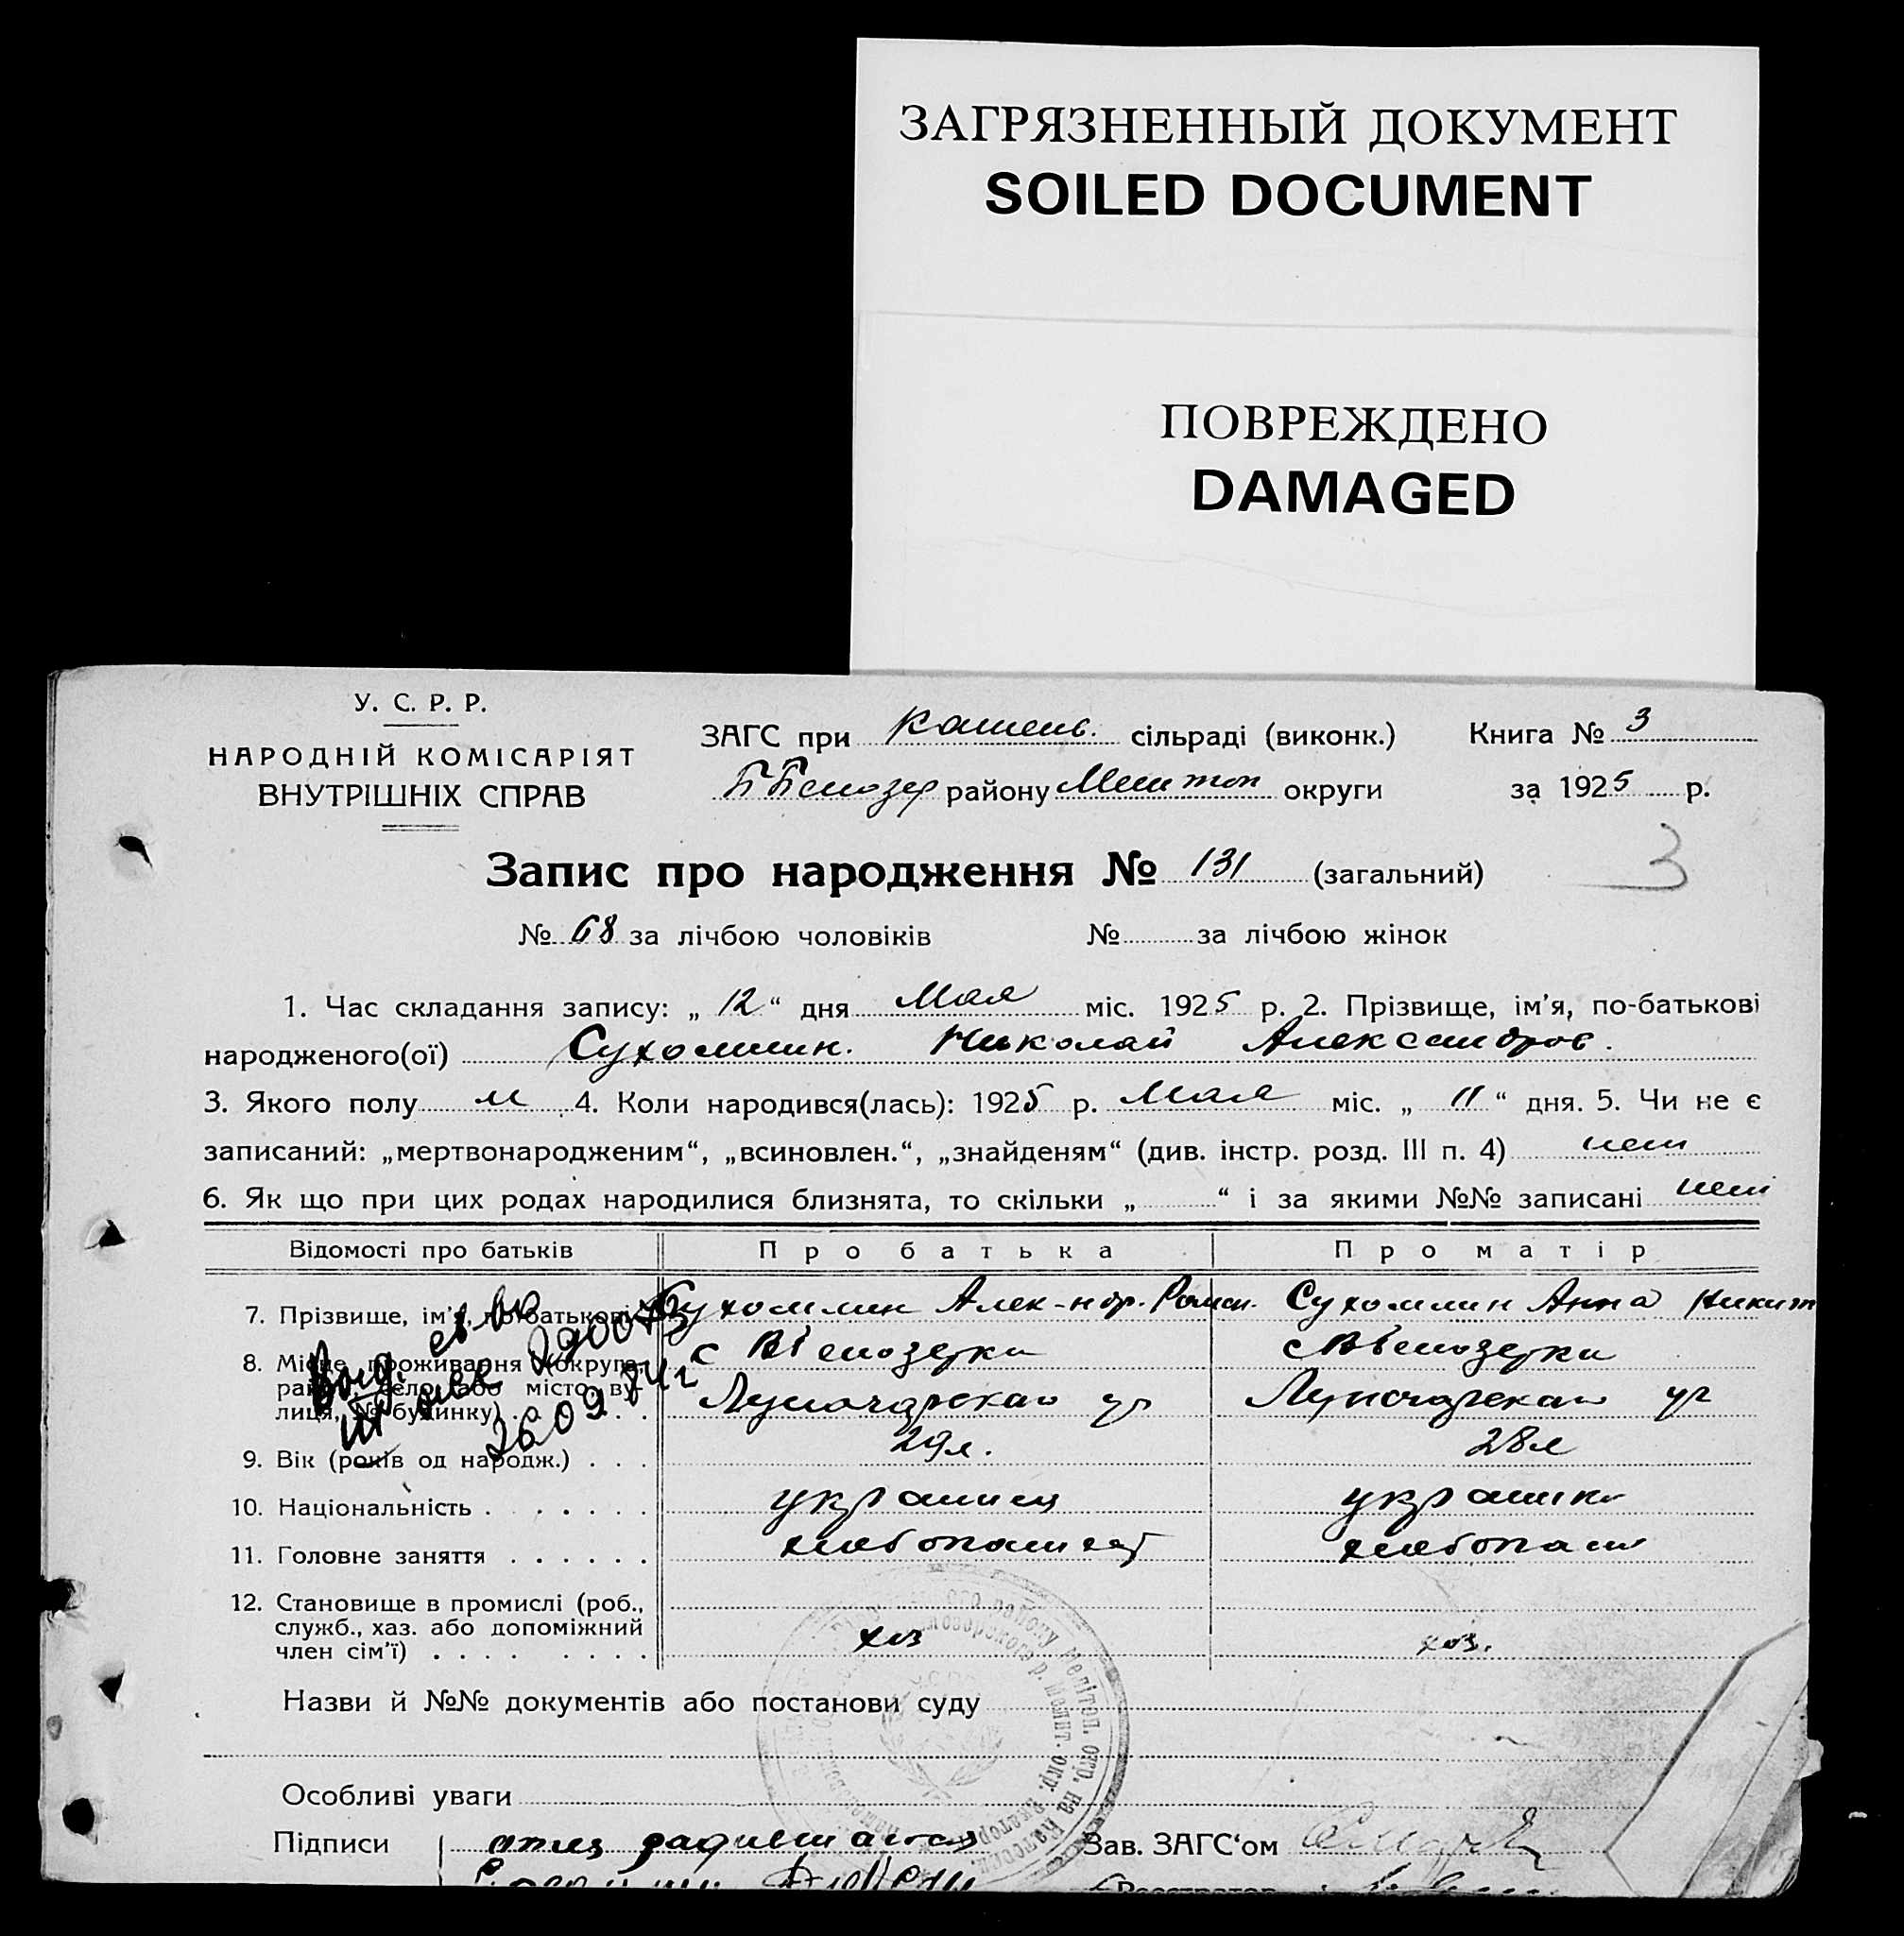 ЗАГРЯЗНЕННЫЙ ДОКУМЕНТ
SOILED DOCUMENT
ПОВРЕЖДЕНО
DAMAGED
У. С. Р. Р.
НАРОДНІЙ КОМІСАРІЯТ
ВНУТРІШНІХ СПРАВ
ЗАГС при Камень. сільраді (виконк.) Книга № 3
ББелозер району Мелитоп округи за 1925 р.
3
Запис про народження № 131 (загальний)
№ 68 за лічбою чоловіків № за лічбою жінок
1. Час складання запису: „ 12 “ дня Мая міс. 1925 р. 2. Прізвище, ім’я, по-батькові
народженого(ої) Сухомлин. Николай Александров.
3. Якого полу м 4. Коли народився(лась): 1925 р. Мая міс. „ 11 “ дня. 5. Чи не є
записаний: „мертвонародженим“, „всиновлен.“, „знайденям“ (див. інстр. розд. III п. 4) нет
6. Як що при цих родах народилися близнята, то скільки „ “ і за якими №№ записані нет
Відомості про батьків Про батька Про матір
7. Прізвище, ім’я, по-батькові Сухомлин Алек-ндр. Роман. Сухомлин Анна Никит
8. Місце проживання (округа, с ВБелозерки с ВБелозерки
район, село або місто, ву-
лиця, № будинку) Луначарская ул Луначарская ул
26 09 84 г
9. Вік (років од народж.) 29л. 28л
10. Національність украинец украинк
11. Головне заняття хлебопашец хлебопаш
12. Становище в промислі (роб.,
служб., хаз. або допоміжний
член сім’ї) хоз хоз.
Назви й №№ документів або постанови суду
Особливі уваги
Підписи отец Зав. ЗАГС‘ом
Реєстратор